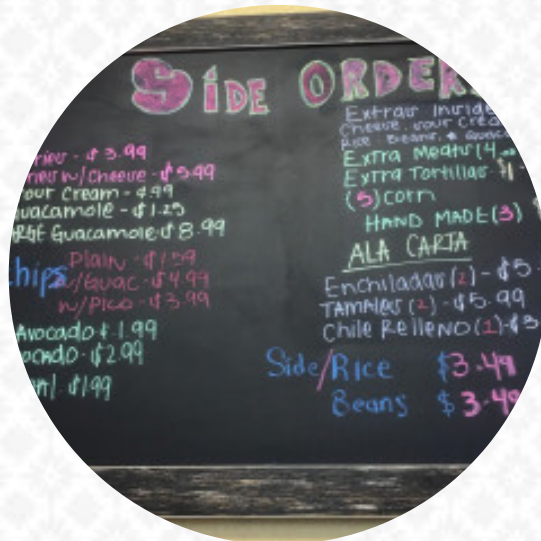 SIDE ORDER
ries - $3.99
ries w/Cheese - $5.99
our Cream - $.99
uacamole - $1.25
RGE Guacamole $8.99
hips Plain - $1.59
w/Guac - $4.99
w/Pico - $3.99
Avocado $1.99
ocado - $2.99
$1.99
Extras Inside
Cheese, sour Crea
Rice Beans, & Guac
Extra Meats (4
Extra Tortillas $1
(5) corn
HAND MADE (3)
ALA CARTA
Enchiladas (2) - $5.
TAMALES (2) - $5.99
Chile Relleno (1) - $3
Side/Rice $3.49
Beans $3.49